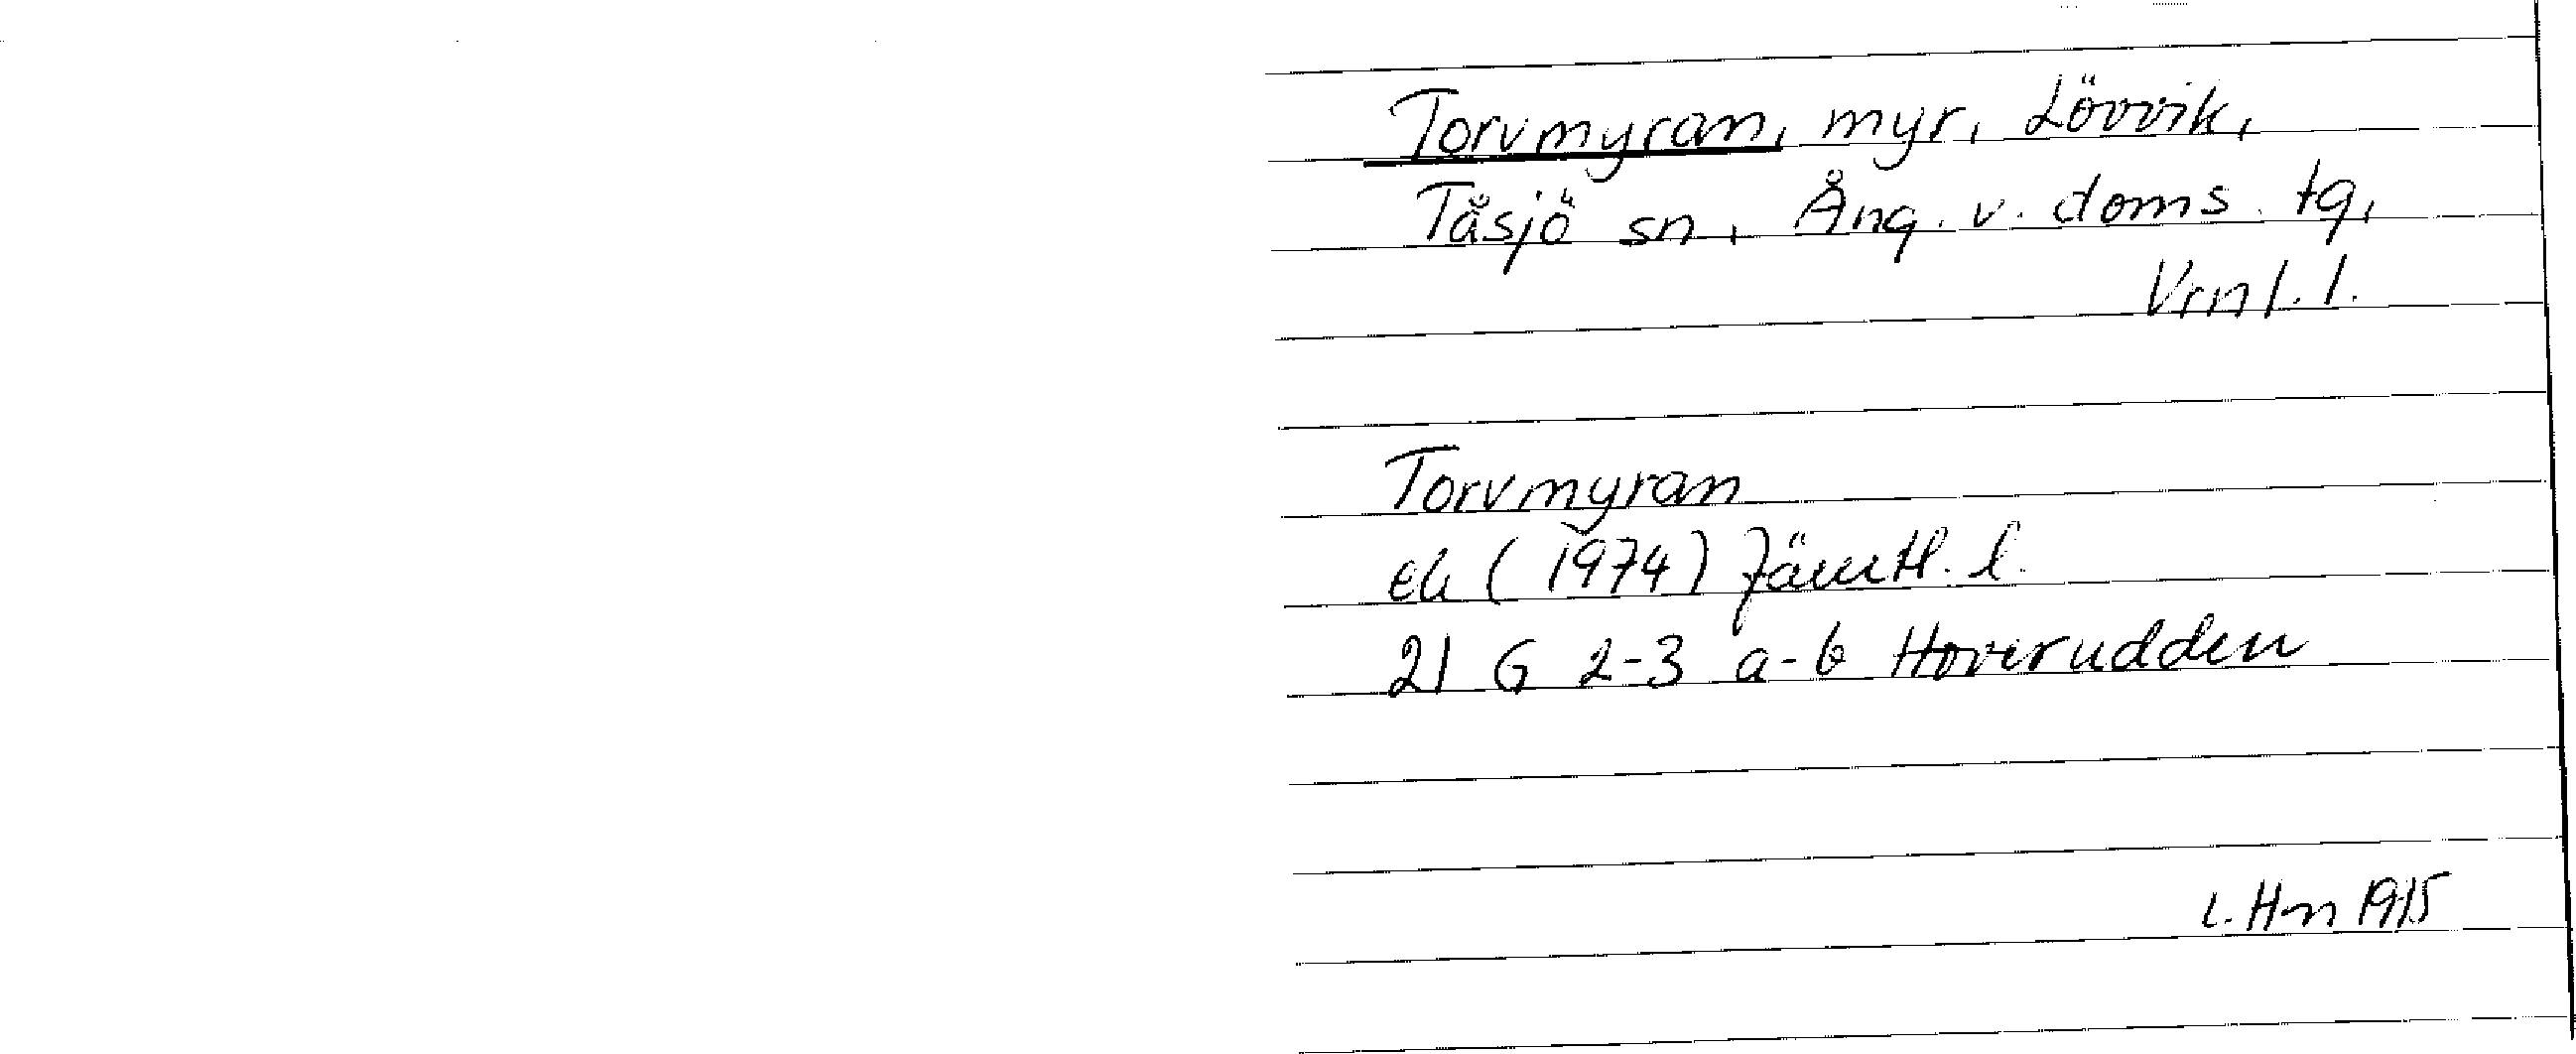 Torvmyran, myr, Lövvik,
Tåsjö sn, Ång. v. doms. tg,
Vrnl. l.
Torvmyran
ek (1974) Jämtl. l.
21 G 2-3 a-b Hoverudden
L. Hn 1915